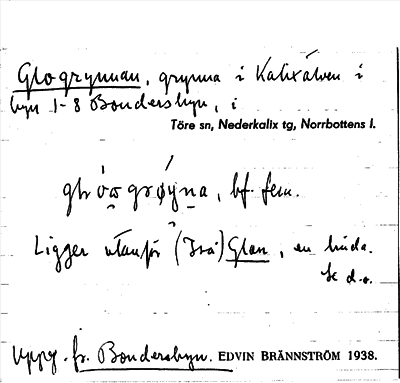 Glogrynnan, grynna i Kalixälven i
byn 1-8 Bondersbyn, i
Töre sn, Nederkalix tg, Norrbottens l.
bf. fem.
Ligger utanför (Två) Glon, en linda.
Se d.o.
Uppg. fr. Bondersbyn. EDVIN BRÄNNSTRÖM 1938.